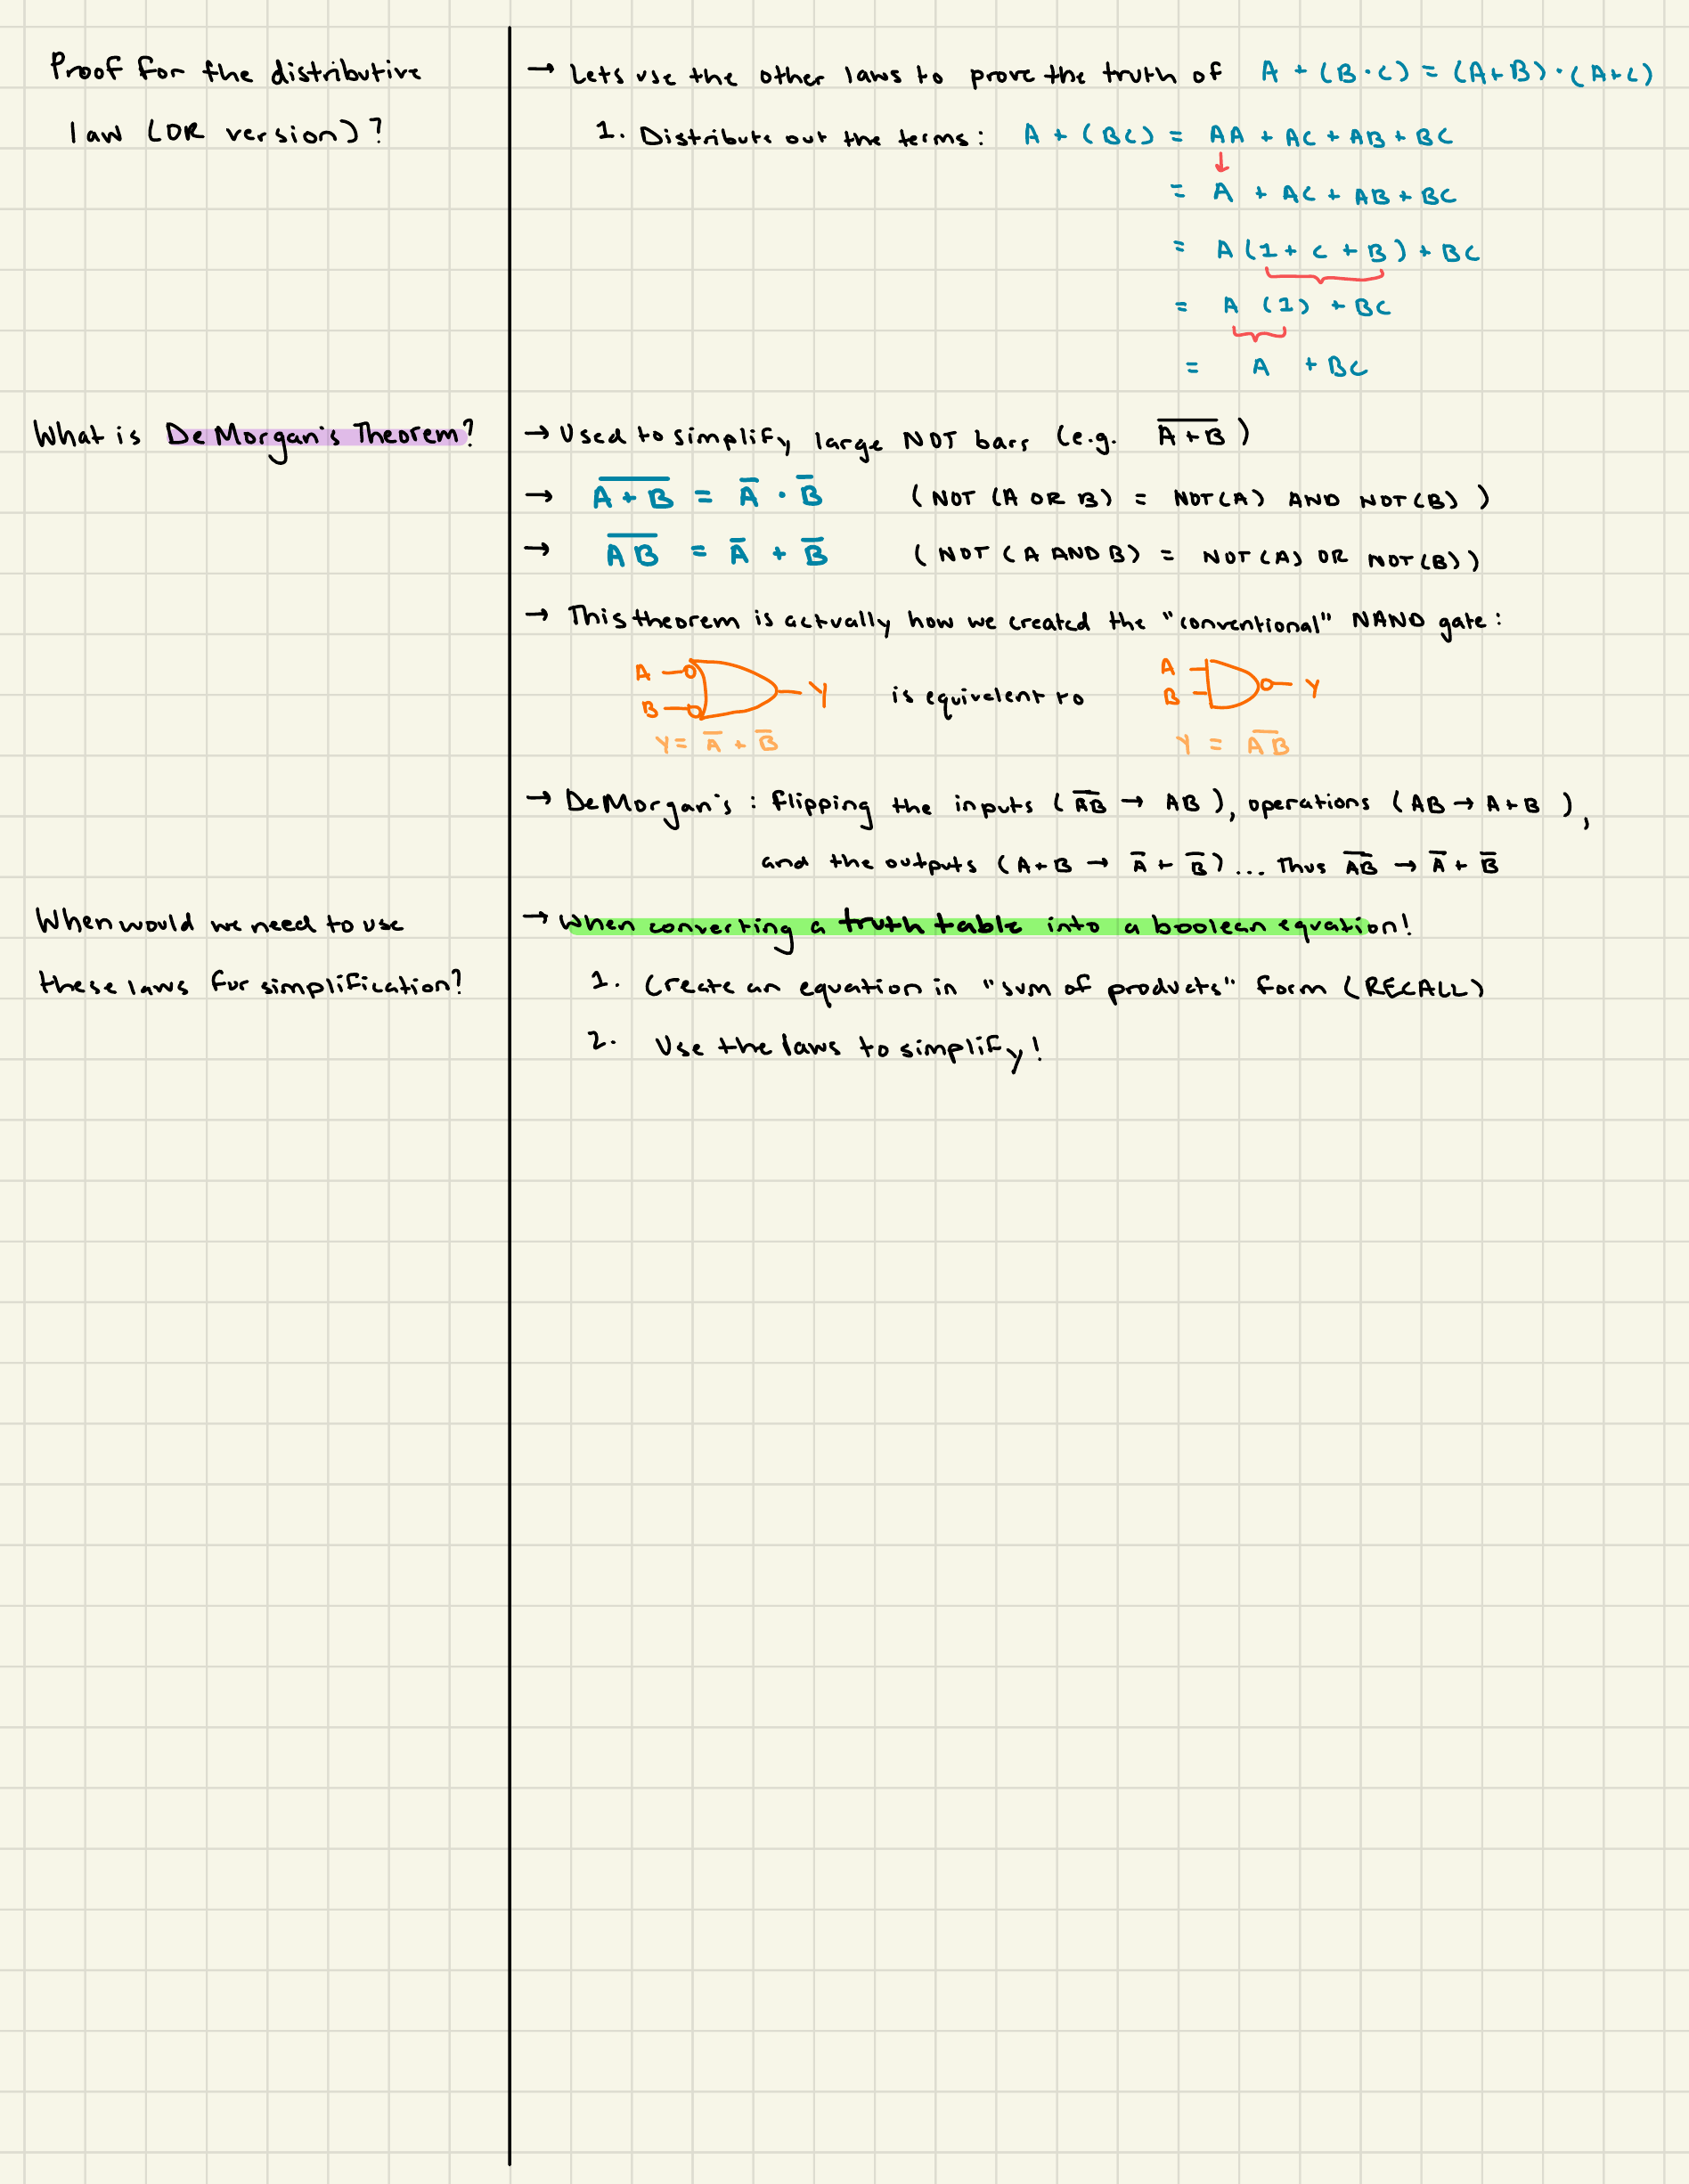 Proof for the distributive
law (OR version)?
→ Lets use the other laws to prove the truth of A + (B·C) = (A+B)·(A+C)
1. Distribute out the terms: A + (BC) = AA + AC + AB + BC
↓
= A + AC + AB + BC
= A(1 + C + B) + BC
= A (1) + BC
= A + BC
What is DeMorgan's Theorem?
→ Used to simplify large NOT bars (e.g. A̅ ̅+̅ ̅B̅)
→ A̅ ̅+̅ ̅B̅ = A̅ · B̅ (NOT (A OR B) = NOT(A) AND NOT(B))
→ A̅B̅ = A̅ + B̅ (NOT (A AND B) = NOT(A) OR NOT(B))
→ This theorem is actually how we created the "conventional" NAND gate:
A
B
Y
Y = A̅ + B̅
is equivalent to
A
B
Y
Y = A̅B̅
→ DeMorgan's: flipping the inputs (A̅B̅ → AB), operations (AB → A+B),
and the outputs (A+B → A̅ + B̅)... Thus A̅B̅ → A̅ + B̅
When would we need to use
these laws for simplification?
→ When converting a truth table into a boolean equation!
1. Create an equation in "sum of products" form (RECALL)
2. Use the laws to simplify!